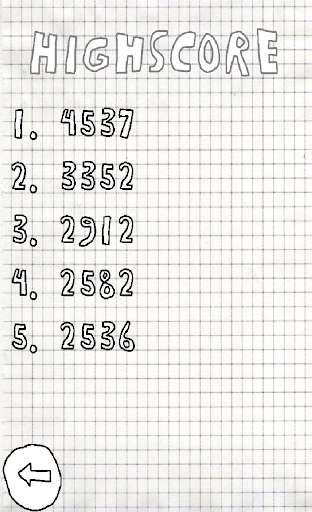 HIGHSCORE
1. 4537
2. 3352
3. 2912
4. 2582
5. 2536